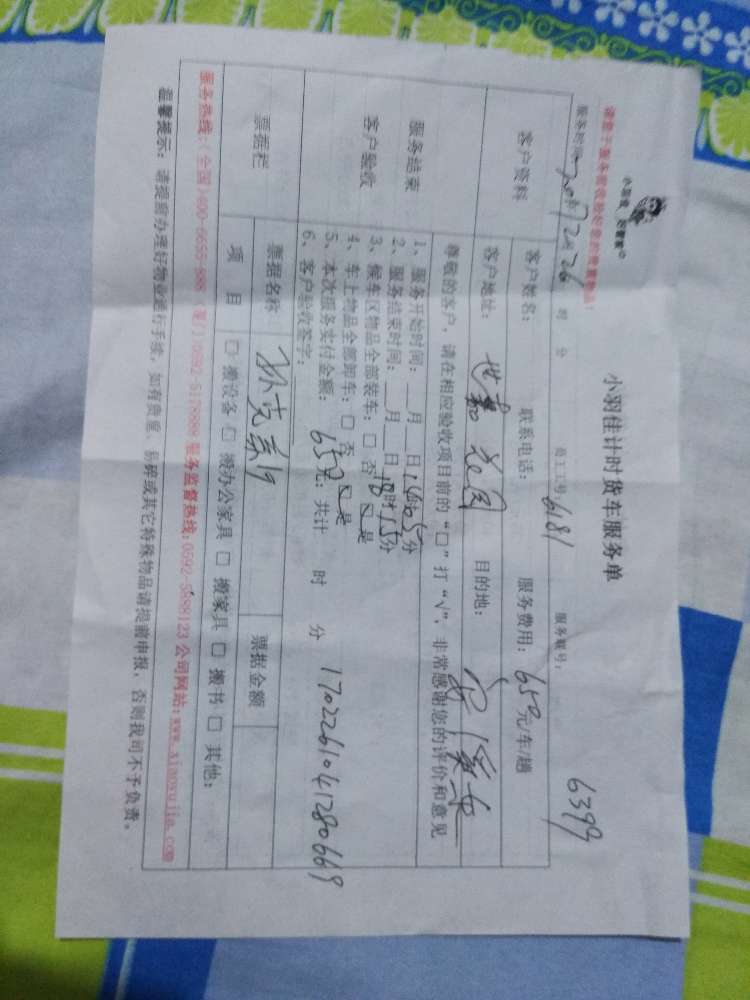 小羽佳 好管家
小羽佳计时货车服务单
请您于服务前收妥好您的贵重物品!
服务时间: 2017 2月26 时 分 员工工号: 6181 服务账号: 6399
客户资料
客户姓名: 联系电话: 服务费用: 650元/车/趟
客户地址: 世嘉花园 目的地:
尊敬的客户,请在相应验收项目前的“□”打“√”,非常感谢您的评价和意见
服务结束
客户验收
1、服务开始时间: 月 日 16时05分
2、服务结束时间: 月 日 18时15分
3、候车区物品全部装车: □ 否 是
4、车上物品全部卸车: □ 否 是
5、本次服务实付金额: 650元; 共计 时 分 1702261041280669
6、客户验收签字:
票据栏
票据名称 票据金额
项 目 □ 搬设备 □ 搬办公家具 □ 搬家具 □ 搬书 □ 其他:
服务热线:(全国)400-6655-888 (厦门)0592-5178888 服务监督热线:0592-5888123 公司网站:www.xiaoyujia.com
温馨提示: 请提前办理好物业通行手续,如有贵重、易碎或其它特殊物品请提前申报,否则我司不予负责。